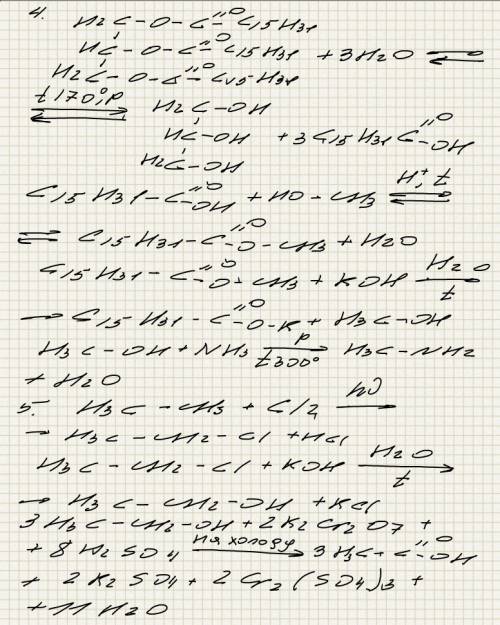 4. H2C-O-C=O C15H31
HC-O-C=O C15H31 + 3H2O ⇌
H2C-O-C=O C15H31
t 170°, p ⇌ H2C-OH
HC-OH + 3 C15H31C=O OH
H2C-OH
C15H31-C=O OH + HO-CH3 ⇌ H+, t
⇌ C15H31-C=O -O-CH3 + H2O
C15H31-C=O -O-CH3 + KOH → H2O t
→ C15H31-C=O -O-K + H3C-OH
H3C-OH + NH3 → p t 300° H3C-NH2
+ H2O
5. H3C-CH3 + Cl2 → hν
→ H3C-CH2-Cl + HCl
H3C-CH2-Cl + KOH → H2O t
→ H3C-CH2-OH + KCl
3H3C-CH2-OH + 2K2Cr2O7 +
+ 8H2SO4 → на холоду 3H3C-C=O OH
+ 2K2SO4 + 2Cr2(SO4)3 +
+ 11H2O